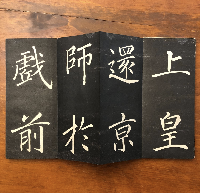 上皇
還京
師於
戲前